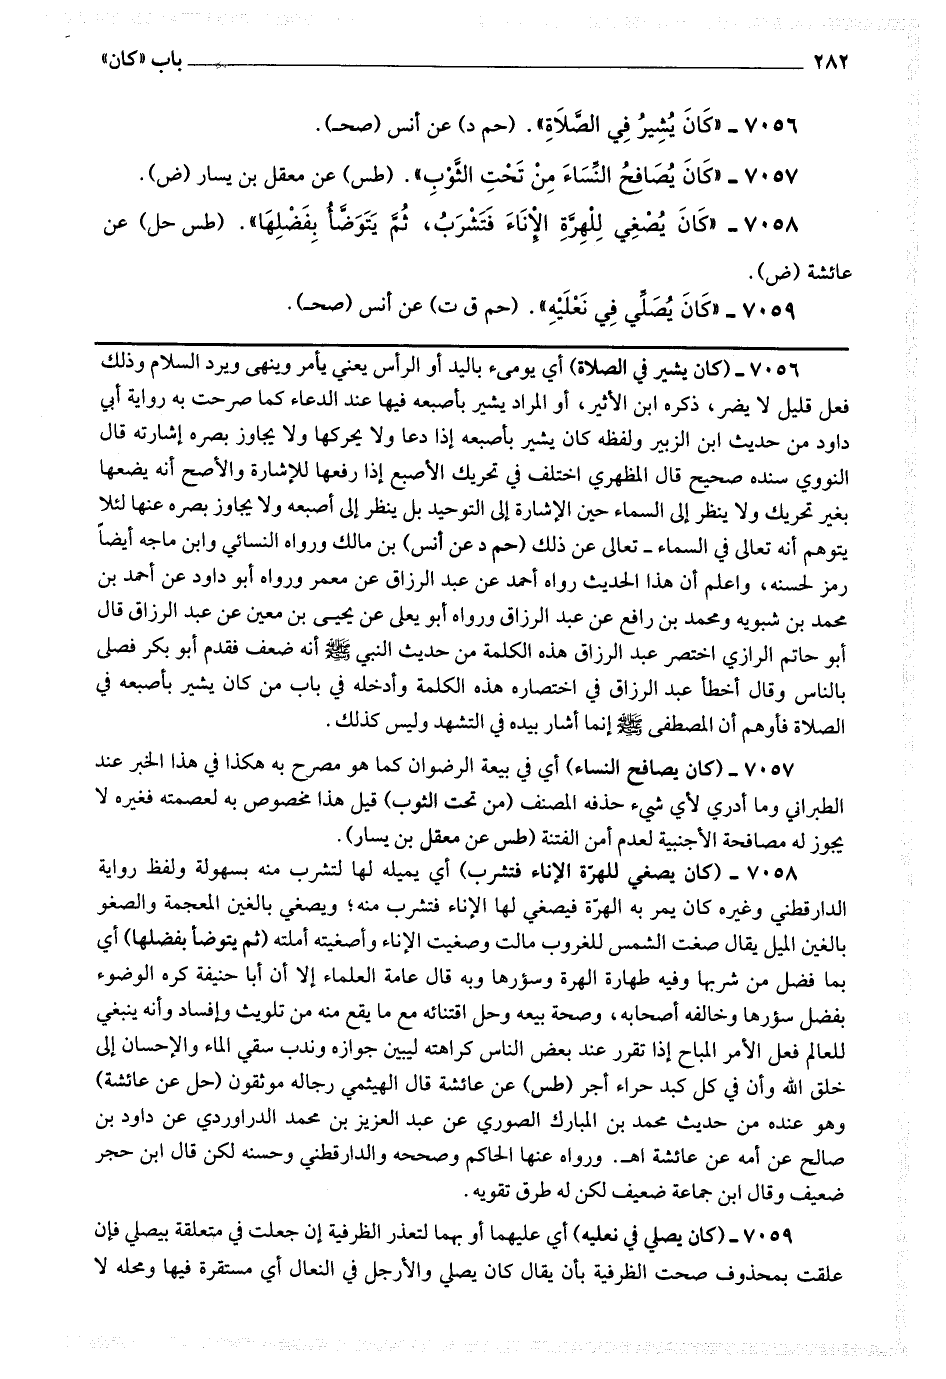 ٢٨٢ باب «كان»
٧٠٥٦ - «كَانَ يُشِيرُ فِي الصَّلَاةِ». (حم د) عن أنس (صحـ).
٧٠٥٧ - «كَانَ يُصَافِحُ النِّسَاءَ مِنْ تَحْتِ الثَّوْبِ». (طس) عن معقل بن يسار (ض).
٧٠٥٨ - «كَانَ يُصْغِي لِلْهِرَّةِ الْإِنَاءَ فَتَشْرَبُ، ثُمَّ يَتَوَضَّأُ بِفَضْلِهَا». (طس حل) عن
عائشة (ض).
٧٠٥٩ - «كَانَ يُصَلِّي فِي نَعْلَيْهِ». (حم ق ت) عن أنس (صحـ).
٧٠٥٦ - (كان يشير في الصلاة) أي يومىء باليد أو الرأس يعني يأمر وينهى ويرد السلام وذلك
فعل قليل لا يضر، ذكره ابن الأثير، أو المراد يشير بأصبعه فيها عند الدعاء كما صرحت به رواية أبي
داود من حديث ابن الزبير ولفظه كان يشير بأصبعه إذا دعا ولا يحركها ولا يجاوز بصره إشارته قال
النووي سنده صحيح قال المظهري اختلف في تحريك الأصبع إذا رفعها للإشارة والأصح أنه يضعها
بغير تحريك ولا ينظر إلى السماء حين الإشارة إلى التوحيد بل ينظر إلى أصبعه ولا يجاوز بصره عنها لئلا
يتوهم أنه تعالى في السماء - تعالى عن ذلك (حم د عن أنس) بن مالك ورواه النسائي وابن ماجه أيضاً
رمز لحسنه، واعلم أن هذا الحديث رواه أحمد عن عبد الرزاق عن معمر ورواه أبو داود عن أحمد بن
محمد بن شبويه ومحمد بن رافع عن عبد الرزاق ورواه أبو يعلى عن يحيـى بن معين عن عبد الرزاق قال
أبو حاتم الرازي اختصر عبد الرزاق هذه الكلمة من حديث النبي ﷺ أنه ضعف فقدم أبو بكر فصلى
بالناس وقال أخطأ عبد الرزاق في اختصاره هذه الكلمة وأدخله في باب من كان يشير بأصبعه في
الصلاة فأوهم أن المصطفى ﷺ إنما أشار بيده في التشهد وليس كذلك.
٧٠٥٧ - (كان يصافح النساء) أي في بيعة الرضوان كما هو مصرح به هكذا في هذا الخبر عند
الطبراني وما أدري لأي شيء حذفه المصنف (من تحت الثوب) قيل هذا مخصوص به لعصمته فغيره لا
يجوز له مصافحة الأجنبية لعدم أمن الفتنة (طس عن معقل بن يسار).
٧٠٥٨ - (كان يصغي للهرّة الإناء فتشرب) أي يميله لها لتشرب منه بسهولة ولفظ رواية
الدارقطني وغيره كان يمر به الهرّة فيصغي لها الإناء فتشرب منه؛ ويصغي بالغين المعجمة والصغو
بالغين الميل يقال صغت الشمس للغروب مالت وصغيت الإناء وأصغيته أملته (ثم يتوضأ بفضلها) أي
بما فضل من شربها وفيه طهارة الهرة وسؤرها وبه قال عامة العلماء إلا أن أبا حنيفة كره الوضوء
بفضل سؤرها وخالفه أصحابه، وصحة بيعه وحل اقتنائه مع ما يقع منه من تلويث وإفساد وأنه ينبغي
للعالم فعل الأمر المباح إذا تقرر عند بعض الناس كراهته ليبين جوازه وندب سقي الماء والإحسان إلى
خلق الله وأن في كل كبد حراء أجر (طس) عن عائشة قال الهيثمي رجاله موثقون (حل عن عائشة)
وهو عنده من حديث محمد بن المبارك الصوري عن عبد العزيز بن محمد الدراوردي عن داود بن
صالح عن أمه عن عائشة اهـ. ورواه عنها الحاكم وصححه والدارقطني وحسنه لكن قال ابن حجر
ضعيف وقال ابن جماعة ضعيف لكن له طرق تقويه.
٧٠٥٩ - (كان يصلي في نعليه) أي عليهما أو بهما لتعذر الظرفية إن جعلت في متعلقة بيصلي فإن
علقت بمحذوف صحت الظرفية بأن يقال كان يصلي والأرجل في النعال أي مستقرة فيها ومحله لا